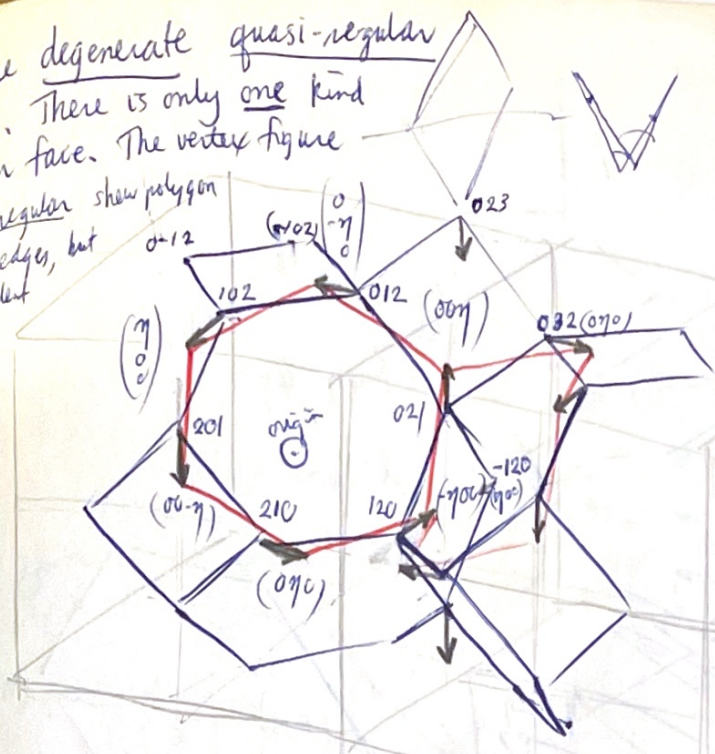 e degenerate quasi-regular
. There is only one kind
n face. The vertex figure
regular skew polygon
edges, but
0-12
0
-η
0
023
102
012
(00η)
032 (0η0)
η
0
0
021
201
origin
-120
(00-η)
210
120
(-η00)
(η00)
(0η0)